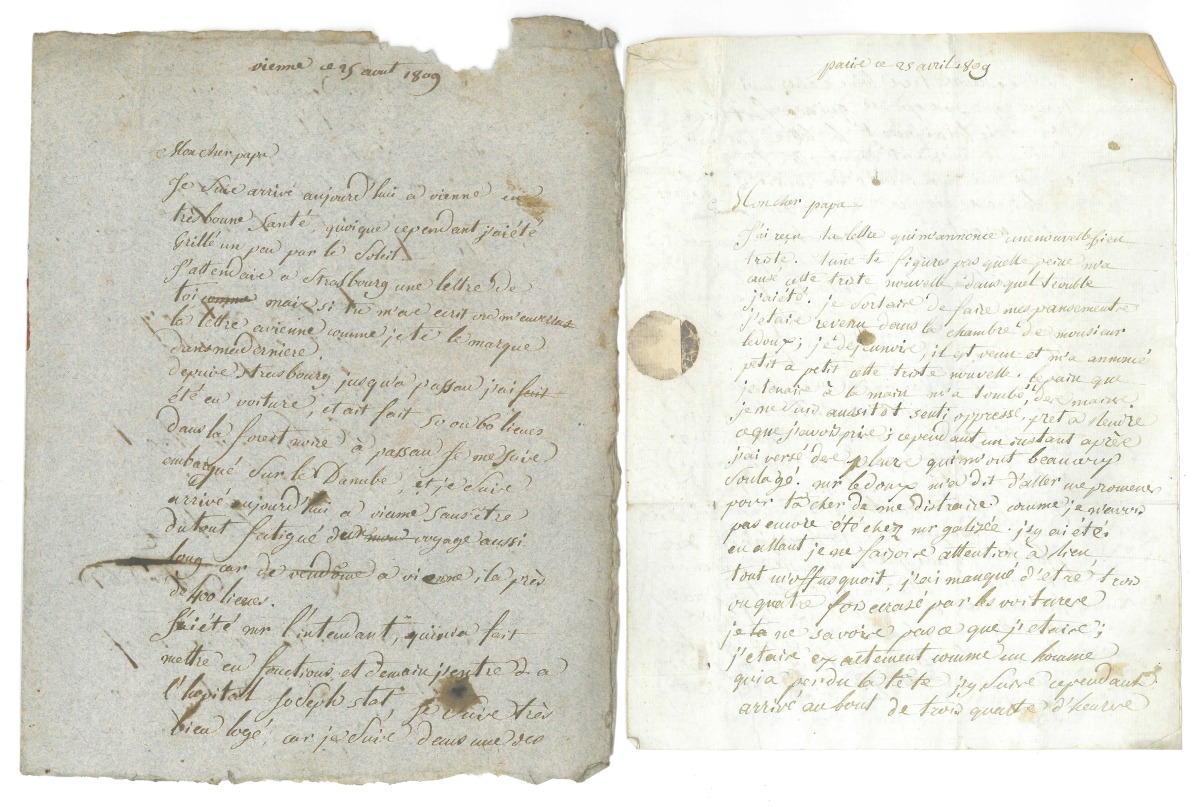 vienne ce 25 aout 1809
Mon cher papa
Je suis arrivé aujourd'hui a vienne en
très bonne santé, quoique cependant j'aiété
Grillé un peu par le Soleil.
J'attendais a Strasbourg une lettre de
toi comme mais si tu m'as ecrit on m'enverras
la lettre a vienne comme je te le marque
dans maderniere.
depuis strasbourg jusqu'a passau j'ai fait
été en voiture, et ait fait 50 ou 60 lieues
dans la forest noire à passau Je me suis
embarqué sur le Danube, et je suis
arrivé aujourd'hui a vienne sans être
du tout fatigué voyage aussi
long car de vendôme a vienne ila près
de 400 lieues.
J'aiété mr l'intendant, quim'a fait
mettre en fonctions, et demain j'entre a
l'hopital Joseph stat, Je suis très
bien logé, car je suis dans une des
paris ce 25 avril 1809
Mon cher papa
J'ai reçu ta lettre qui m'annonce une nouvelle bien
triste. tu ne te figures pas quelle peine m'a
causé cette triste nouvelle, dans quel trouble
j'aiété. je sortais de faire mes pansements
J'etais revenu dans la chambre de monsieur
ledoux; je dejeunois, il est venu et m'a annoncé
petit a petit cette triste nouvelle. le pain que
je tenais à la main m'a tombé des mains
je me suis aussitot senti oppressé, pret a rendre
ce que j'avois pris; cependant un instant après
j'ai versé des pleurs qui m'ont beaucoup
soulagé. mr ledoux m'a dit d'aller me promener
pour tâcher de me distraire comme je n'avois
pas encore été chez mr j'y ai été.
en allant je ne faisois attention à rien
tout m'offusquoit, j'ai manqué d'etre trois
ou quatre fois écrasé par les voitures
je ne savois pas ce que j'etais;
j'etais exactement comme un homme
qui a perdu la tête j'y suis cependant
arrivé au bout de trois quarts d'heures